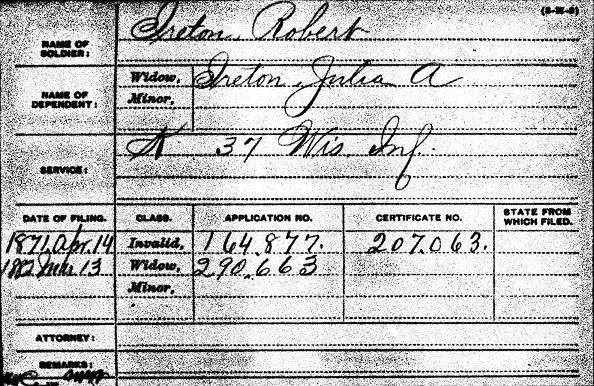 (3-25-6)
NAME OF SOLDIER: Ireton, Robert
NAME OF DEPENDENT: Widow, Ireton, Julia A
Minor,
SERVICE: K 37 Wis. Inf.
DATE OF FILING. CLASS. APPLICATION NO. CERTIFICATE NO. STATE FROM WHICH FILED.
1871, Apr. 14 Invalid, 164.877. 207.063.
13 Widow, 290.663
Minor,
ATTORNEY:
REMARKS: